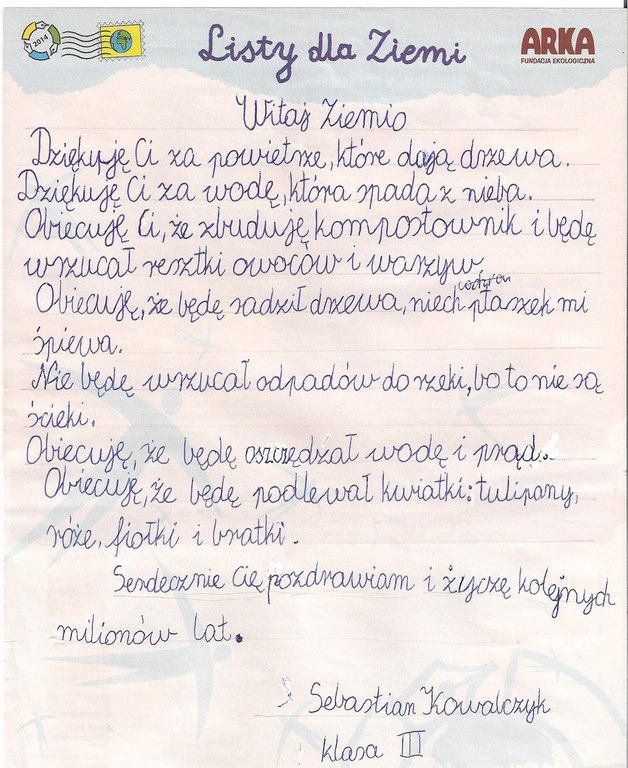 2014
Listy dla Ziemi
ARKA
FUNDACJA EKOLOGICZNA
Witaj Ziemio
Dziękuję Ci za powietrze, które dają drzewa.
Dziękuję Ci za wodę, która spada z nieba.
Obiecuję Ci, że zbuduję kompostownik i będę
wrzucał resztki owoców i warzyw.
Obiecuję, że będę sadził drzewa, niech ptaszek mi
śpiewa.
Nie będę wrzucał odpadów do rzeki, bo to nie są
ścieki.
Obiecuję, że będę oszczędzał wodę i prąd.
Obiecuję, że będę podlewał kwiatki: tulipany,
róże, fiołki i bratki.
Serdecznie Cię pozdrawiam i życzę kolejnych
milionów lat.
Sebastian Kowalczyk
klasa III